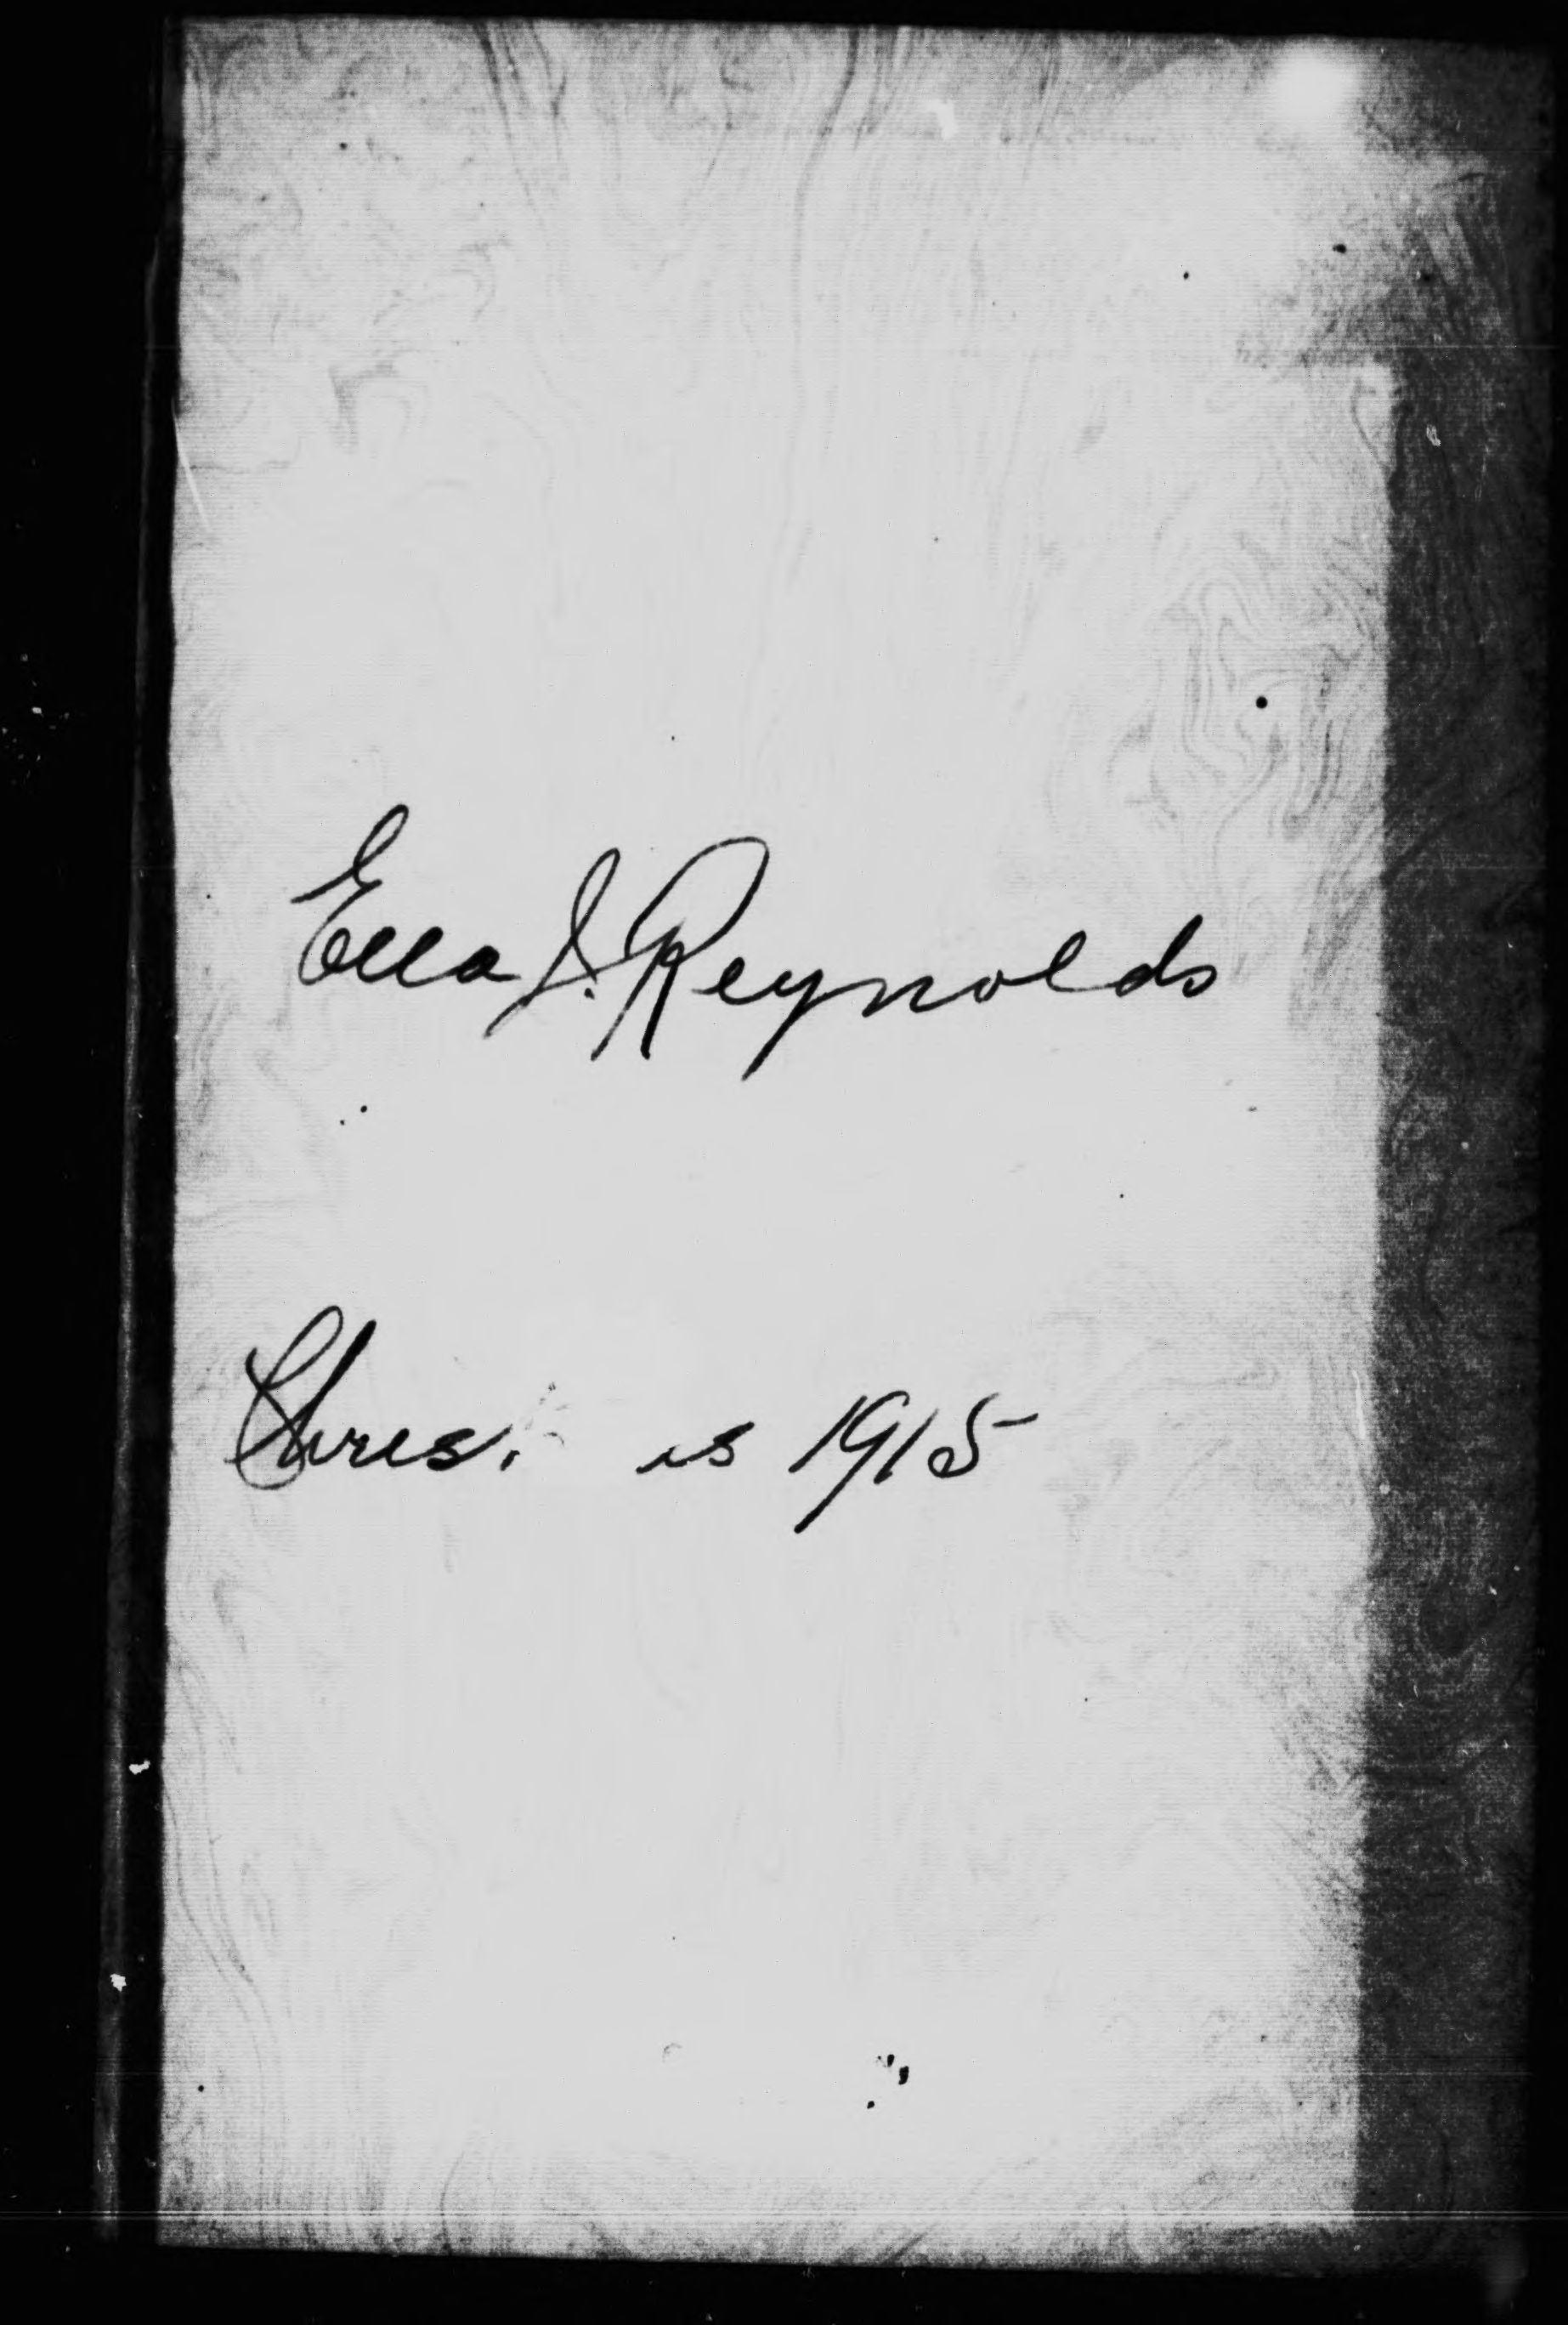 Ella J. Reynolds
Chris. is 1915